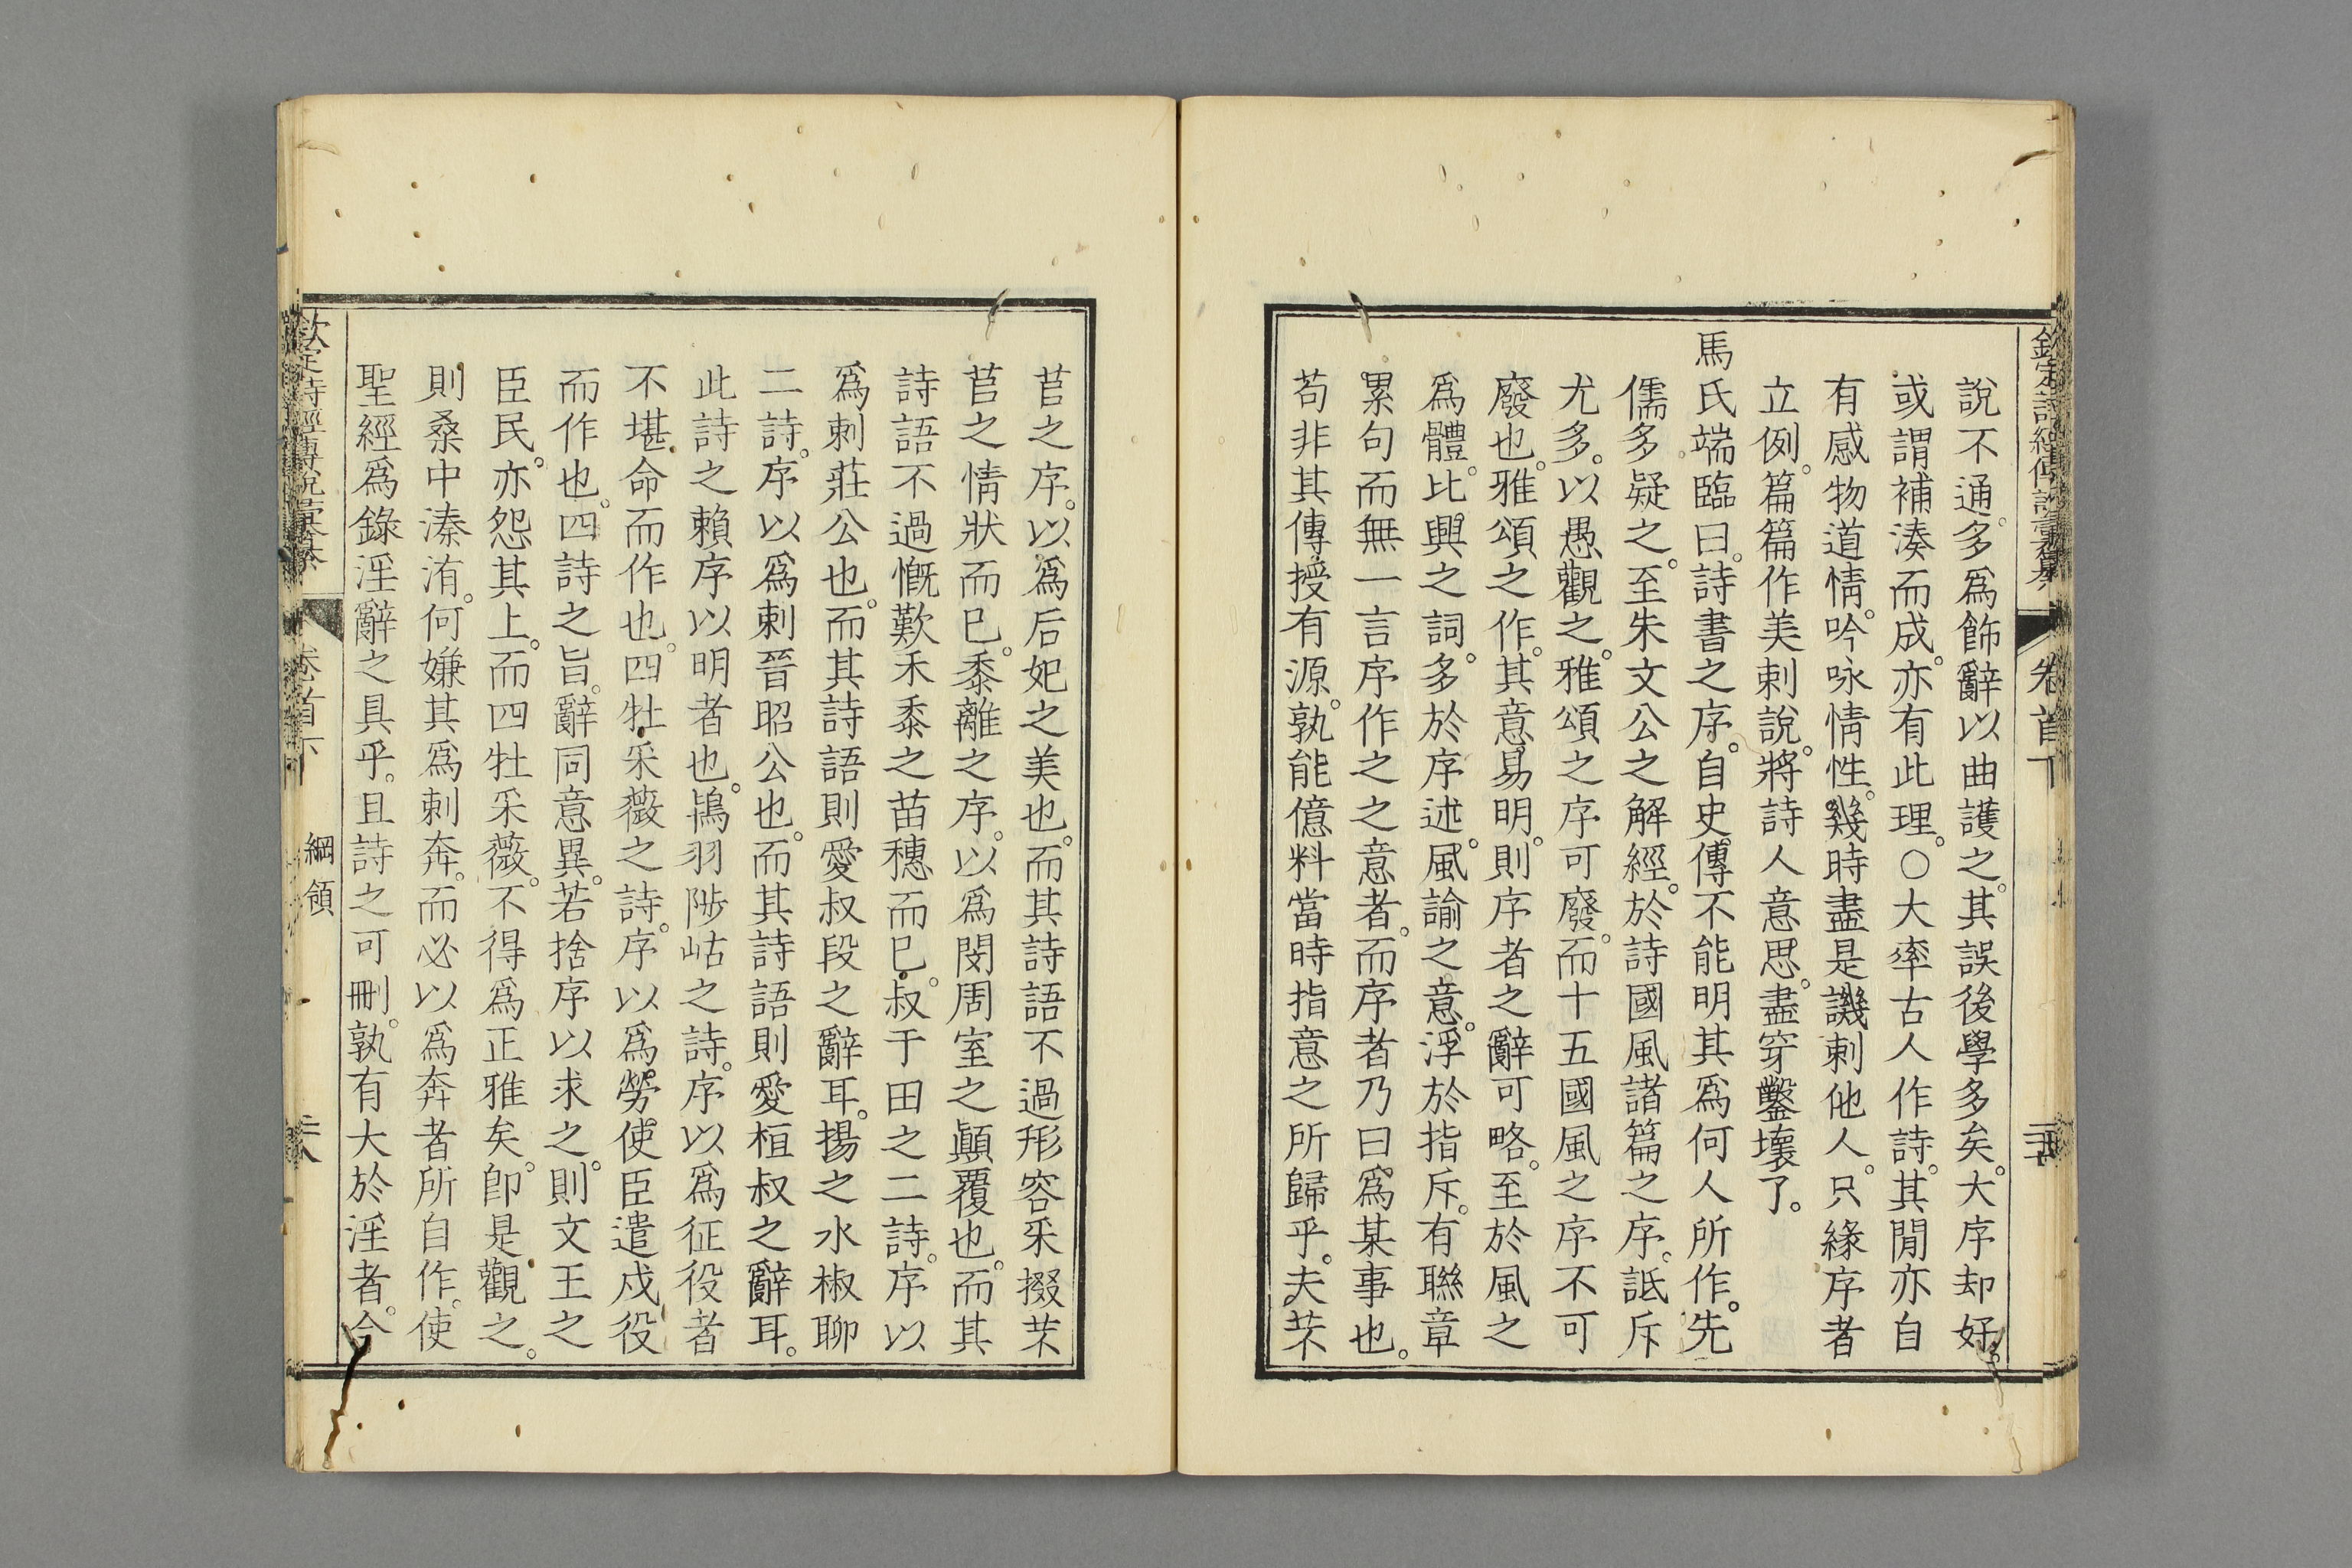 欽定詩經傳說彙纂 卷首下
說不通。多爲飾辭以曲護之。其誤後學多矣。大序却好。
或謂補湊而成。亦有此理。○大率古人作詩。其閒亦自
有感物道情。吟咏情性。幾時盡是譏刺他人。只緣序者
立例。篇篇作美刺說。將詩人意思。盡穿鑿壞了。
馬氏端臨曰。詩書之序。自史傳不能明其爲何人所作。先
儒多疑之。至朱文公之解經。於詩國風諸篇之序。詆斥
尤多。以愚觀之。雅頌之序可廢。而十五國風之序不可
廢也。雅頌之作。其意易明。則序者之辭可略。至於風之
爲體。比興之詞。多於序述。風諭之意。浮於指斥。有聯章
累句而無一言序作之之意者。而序者乃曰。爲某事也。
苟非其傳授有源。孰能億料當時指意之所歸乎。夫芣
苢之序。以爲后妃之美也。而其詩語不過形容采掇芣
苢之情狀而已。黍離之序。以爲閔周室之顚覆也。而其
詩語不過慨歎禾黍之苗穗而已。叔于田之二詩。序以
爲刺莊公也。而其詩語則愛叔段之辭耳。揚之水椒聊
二詩。序以爲刺晉昭公也。而其詩語則愛桓叔之辭耳。
此詩之賴序以明者也。鴇羽陟岵之詩。序以爲征役者
不堪命而作也。四牡采薇之詩。序以爲勞使臣遣戍役
而作也。四詩之旨。辭同意異。若捨序以求之。則文王之
臣民。亦怨其上。而四牡采薇。不得爲正雅矣。卽是觀之。
則桑中溱洧。何嫌其爲刺奔。而必以爲奔者所自作。使
聖經爲錄淫辭之具乎。且詩之可刪。孰有大於淫者。今
欽定詩經傳說彙纂 卷首下 綱領